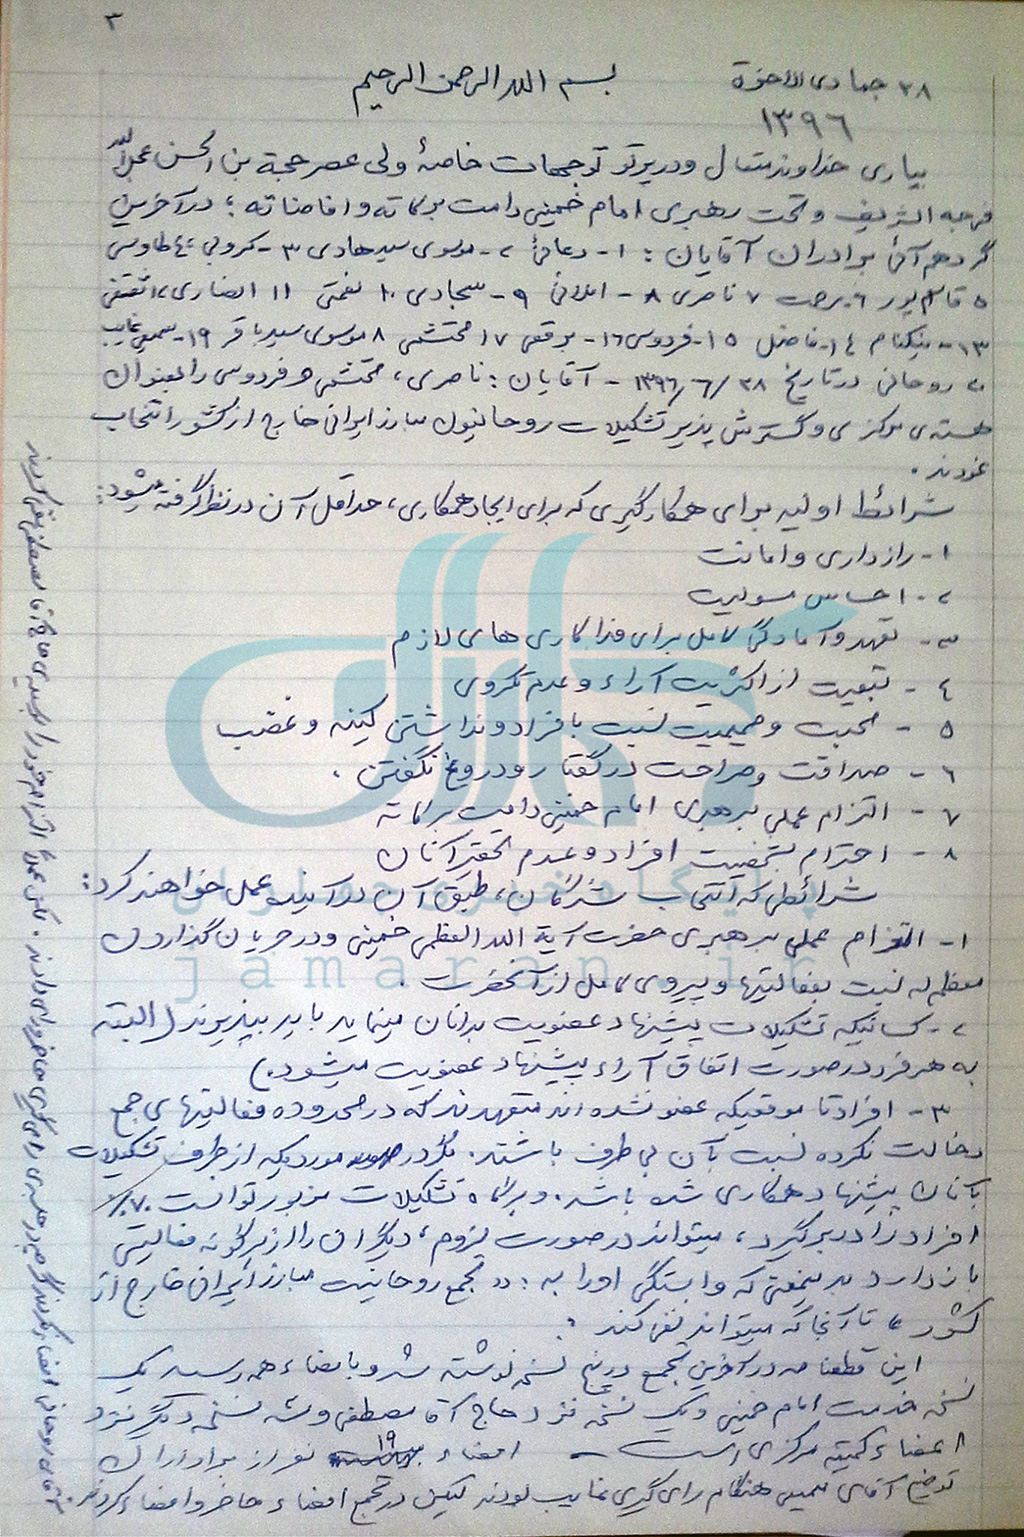 ۳
۲۸ جمادی الاخرة
۱۳۹٦
بسم الله الرحمن الرحیم
بیاری خداوند متعال و در پرتو توجهات خاصهٔ ولی عصر حجة بن الحسن عجل الله
فرجه الشریف و تحت رهبری امام خمینی دامت برکاته و افاضاته؛ در آخرین
گردهم آئی برادران آقایان: ۱- دعائی ۲- موسوی سید هادی ۳- کروبی ٤ طاوسی
۵ قاسم پور ٦ ۷ ناصری ۸- املائی ۹- سجادی ۱۰ نعمتی ۱۱ انصاری ۱۲ ثقفی
۱۳- نیکنام ۱٤- فاضل ۱۵- فردوسی ۱٦- برقعی ۱۷ محتشمی ۸ موسوی سید باقر ۱۹- سمیعی غایب
۲۰ روحانی در تاریخ ۲۸/٦/۱۳۹٦ - آقایان: ناصری، محتشمی و فردوسی را بعنوان
هسته‌ی مرکزی و گسترش پذیر تشکیلات روحانیون مبارز ایرانی خارج از کشور انتخاب
نمودند.
شرائط اولیه برای همکارگیری که برای ایجاد همکاری، حداقل آن در نظر گرفته میشود:
۱- رازداری و امانت
۲- احساس مسولیت
۳- تعهد و آمادگی کامل برای فداکاری های لازم
٤- تبعیت از اکثریت آراء و عدم تکروی
۵- محبت و صمیمیت نسبت بافراد و نداشتن کینه و غضب
٦- صداقت و صراحت در گفتار و دروغ نگفتن.
۷- التزام عملی برهبری امام خمینی دامت برکاته
۸- احترام بشخصیت افراد و عدم تحقیر آنان
شرائطی که انتخاب شدگان، طبق آن در آینده عمل خواهند کرد:
۱- التزام عملی برهبری حضرت آیة الله العظمی خمینی و در جریان گذاردن
معظم له نسبت بفعالیتها و پیروی کامل از آنحضرت.
۲- کسانیکه تشکیلات پیشنهاد عضویت بدانان مینماید باید بپذیرند (البته
به هر فرد در صورت اتفاق آراء پیشنهاد عضویت میشود.)
۳- افراد تا موقعیکه عضو نشده اند متعهدند که در محدوده فعالیتهای جمع
دخالت نکرده نسبت بآن بی طرف باشند. مگر در موردیکه از طرف تشکیلات
بآنان پیشنهاد همکاری شده باشد. و هرگاه تشکیلات مزبور توانست ۷۰٪
افراد را در بر گیرد، میتواند در صورت لزوم، دیگران را از هرگونه فعالیتی
باز دارد بدینمعنی که وابستگی او را به: «تجمع روحانیت مبارز ایرانی خارج از
کشور» تا آنجا که میتواند نفی کند.
این قطعنامه در آخرین تجمع در پنج نسخه نوشته شد و بامضاء همه رسید یک
نسخه خدمت امام خمینی و یک نسخه نزد حاج آقا مصطفی و سه نسخه دیگر نزد
اعضاء کمیته مرکزی است - امضاء ۱۹ نفر از برادران
توضیح آقای سمیعی هنگام رای گیری غایب بودند لیکن در تجمع امضاء حاضر و امضاء کردند.
jamaran.ir